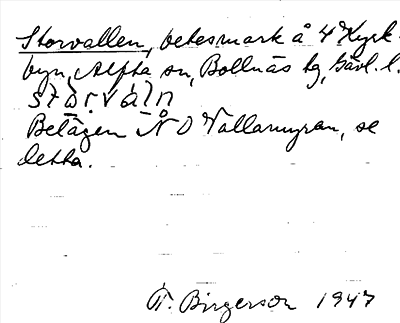 Storvallen, betesmark å 4º Kyrk-
byn, Alfta sn, Bollnäs tg, Gävl. l.
stòrváln
Belägen NO Vallamyran, se
detta.
T. Birgerson 1947